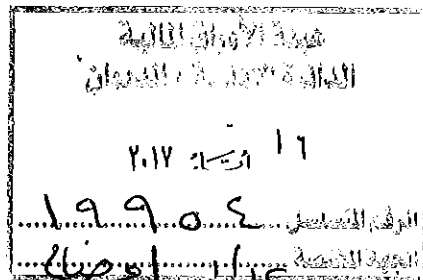 هيئة الأوراق المالية
الدائرة الإدارية / الديوان
١٦ نيسان ٢٠١٧
الرقم المتسلسل ١٩٩٥٤
الجهة المختصة